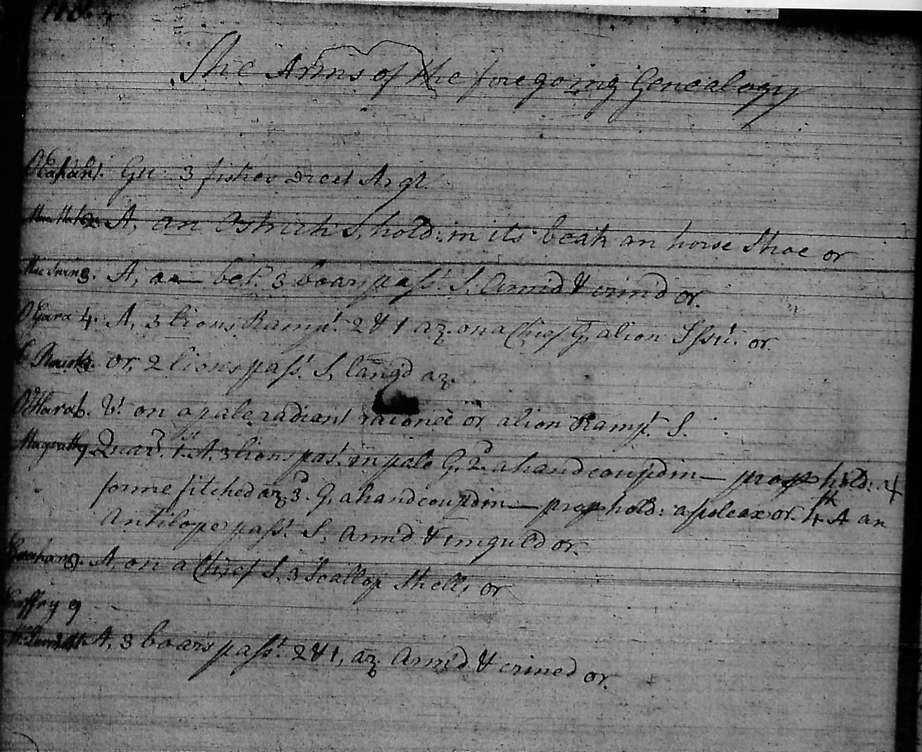 The Arms of the foregoing Genealogy
Gu: 3 fishes Argt.
A, an Ostrich S, hold: in its beak an horse Shoe or
3. A, a — bet. 3 boars pass: S. Armd & crind or.
OGara 4. A, 3 lions Rampt. 2 & 1 az. on a Chief G, a lion Issu. or
or, 2 lions pass. S, langd az.
OHara 6. V: on a pale radiant raionee or a lion Rampt. S.
Magrath 7. Quar. 1st. A, 3 lions pas: in pale G, 2d. a hand coupd in — prop hold: a +
forme fitched az 3d. G, a hand coupd in — prop hold: a poleax or. 4th A an
Antilope pass. S. Armd & unguled or.
A, on a Chief S, 3 Scallop Shells or
9
A, 3 boars pass. 2 & 1, az Armd & crined or.